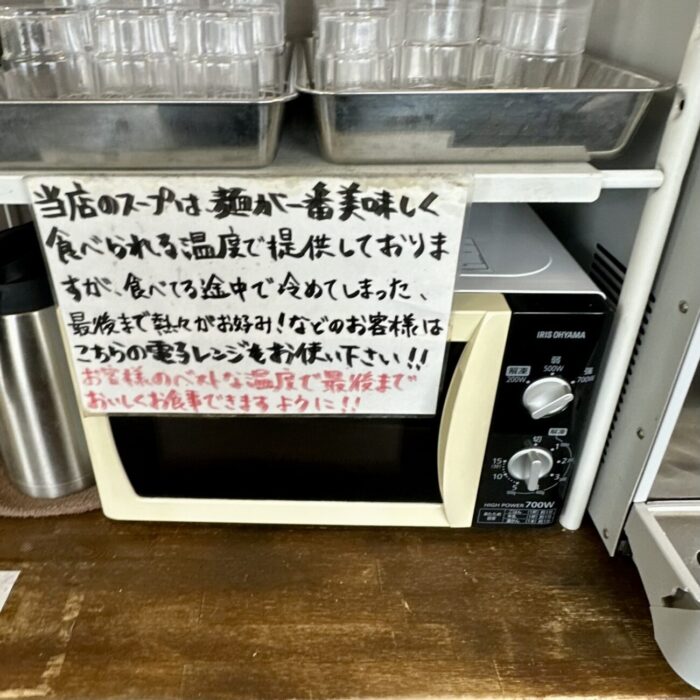 当店のスープは、麺が一番美味しく
食べられる温度で提供しておりま
すが、食べてる途中で冷めてしまった、
最後まで熱々がお好み!などのお客様は
こちらの電子レンジもお使い下さい!!
お客様のベストな温度で最後まで
おいしくお食事できますように!!
IRIS OHYAMA
弱
解凍 500W 強
200W 700W
解凍
切
15 1
10 2
5 3
HIGH POWER 700W